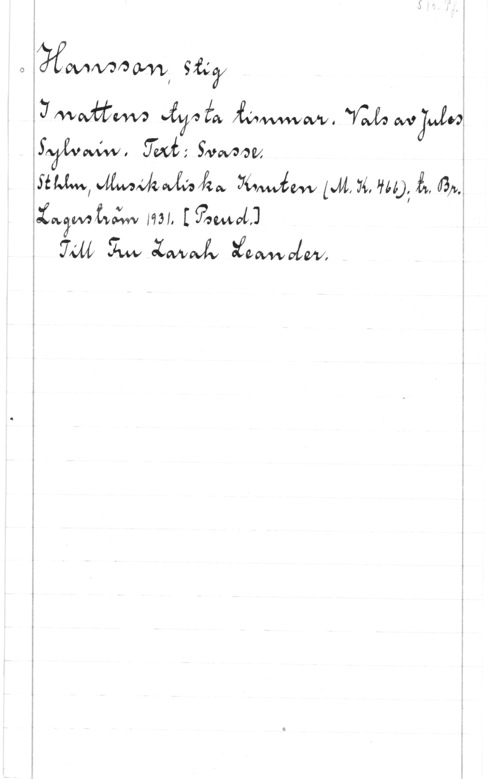 Hansson, Stig
I nattens tysta timmar. Vals av Jules
Sylvain. Text: Svasse.
Sthlm, Musikaliska Knuten (M. K. 466); tr. Br.
Lagerström 1931. [Pseud.]
Till Fru Zarah Leander.